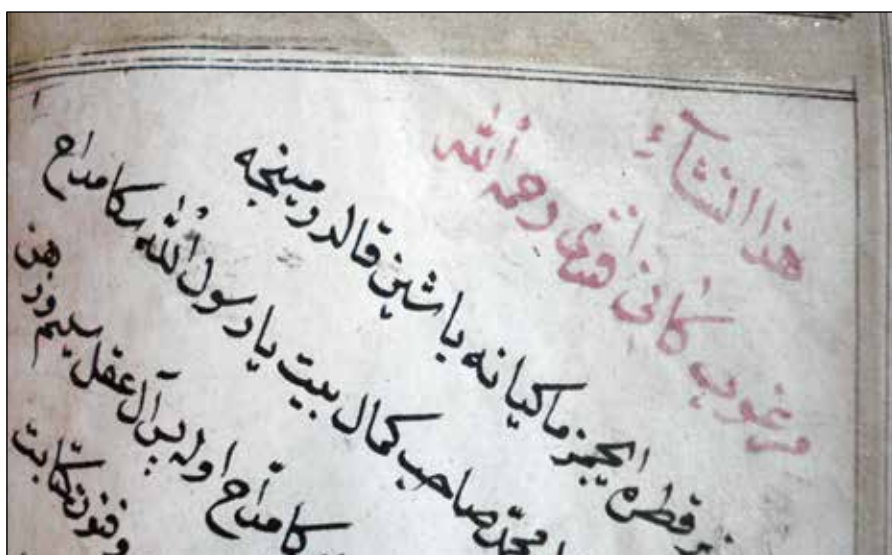 هذا انشاء
مرغوب كانى افندى رحمه الله
قطره ايچمز ماكيانه باشين قالدرمينجه
محمد صاحب كمال بيت يا رسول الله سكا مداح
مداح اوله عقل سليم وذهن
كتابت